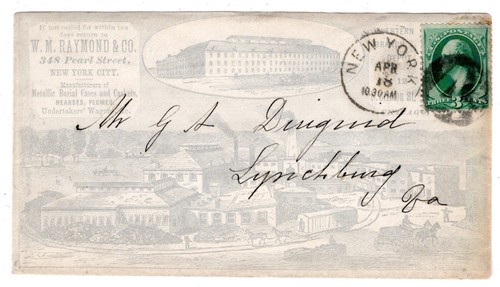 If not called for within ten
days return to
W. M. RAYMOND & CO.
348 Pearl Street,
NEW YORK CITY.
Manufacturers of
Metallic Burial Cases and Caskets,
HEARSES, PLUMES,
Undertakers'
NEW YORK
APR
18
10 30 AM
THREE 3 CENTS
Mr G A Diuguid
Lynchburg
Va